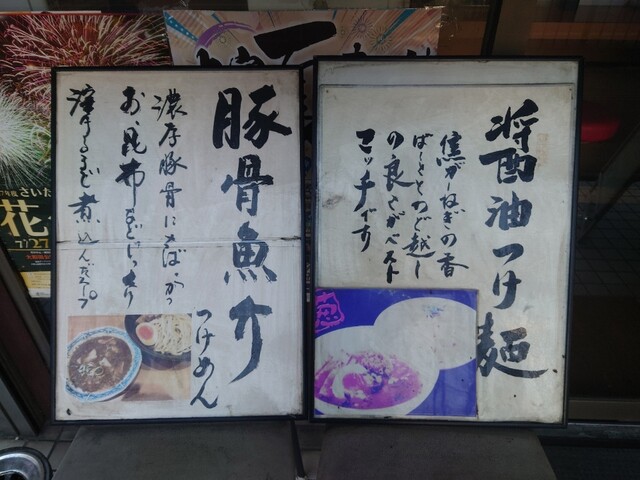 醤油つけ麺
焦がしねぎの香
ばしさとのど越し
の良さがベスト
マッチです
豚骨魚介
つけめん
濃厚豚骨にさば、かつ
お、昆布などじっくり
煮込んだスープ
さいた
花
7/27